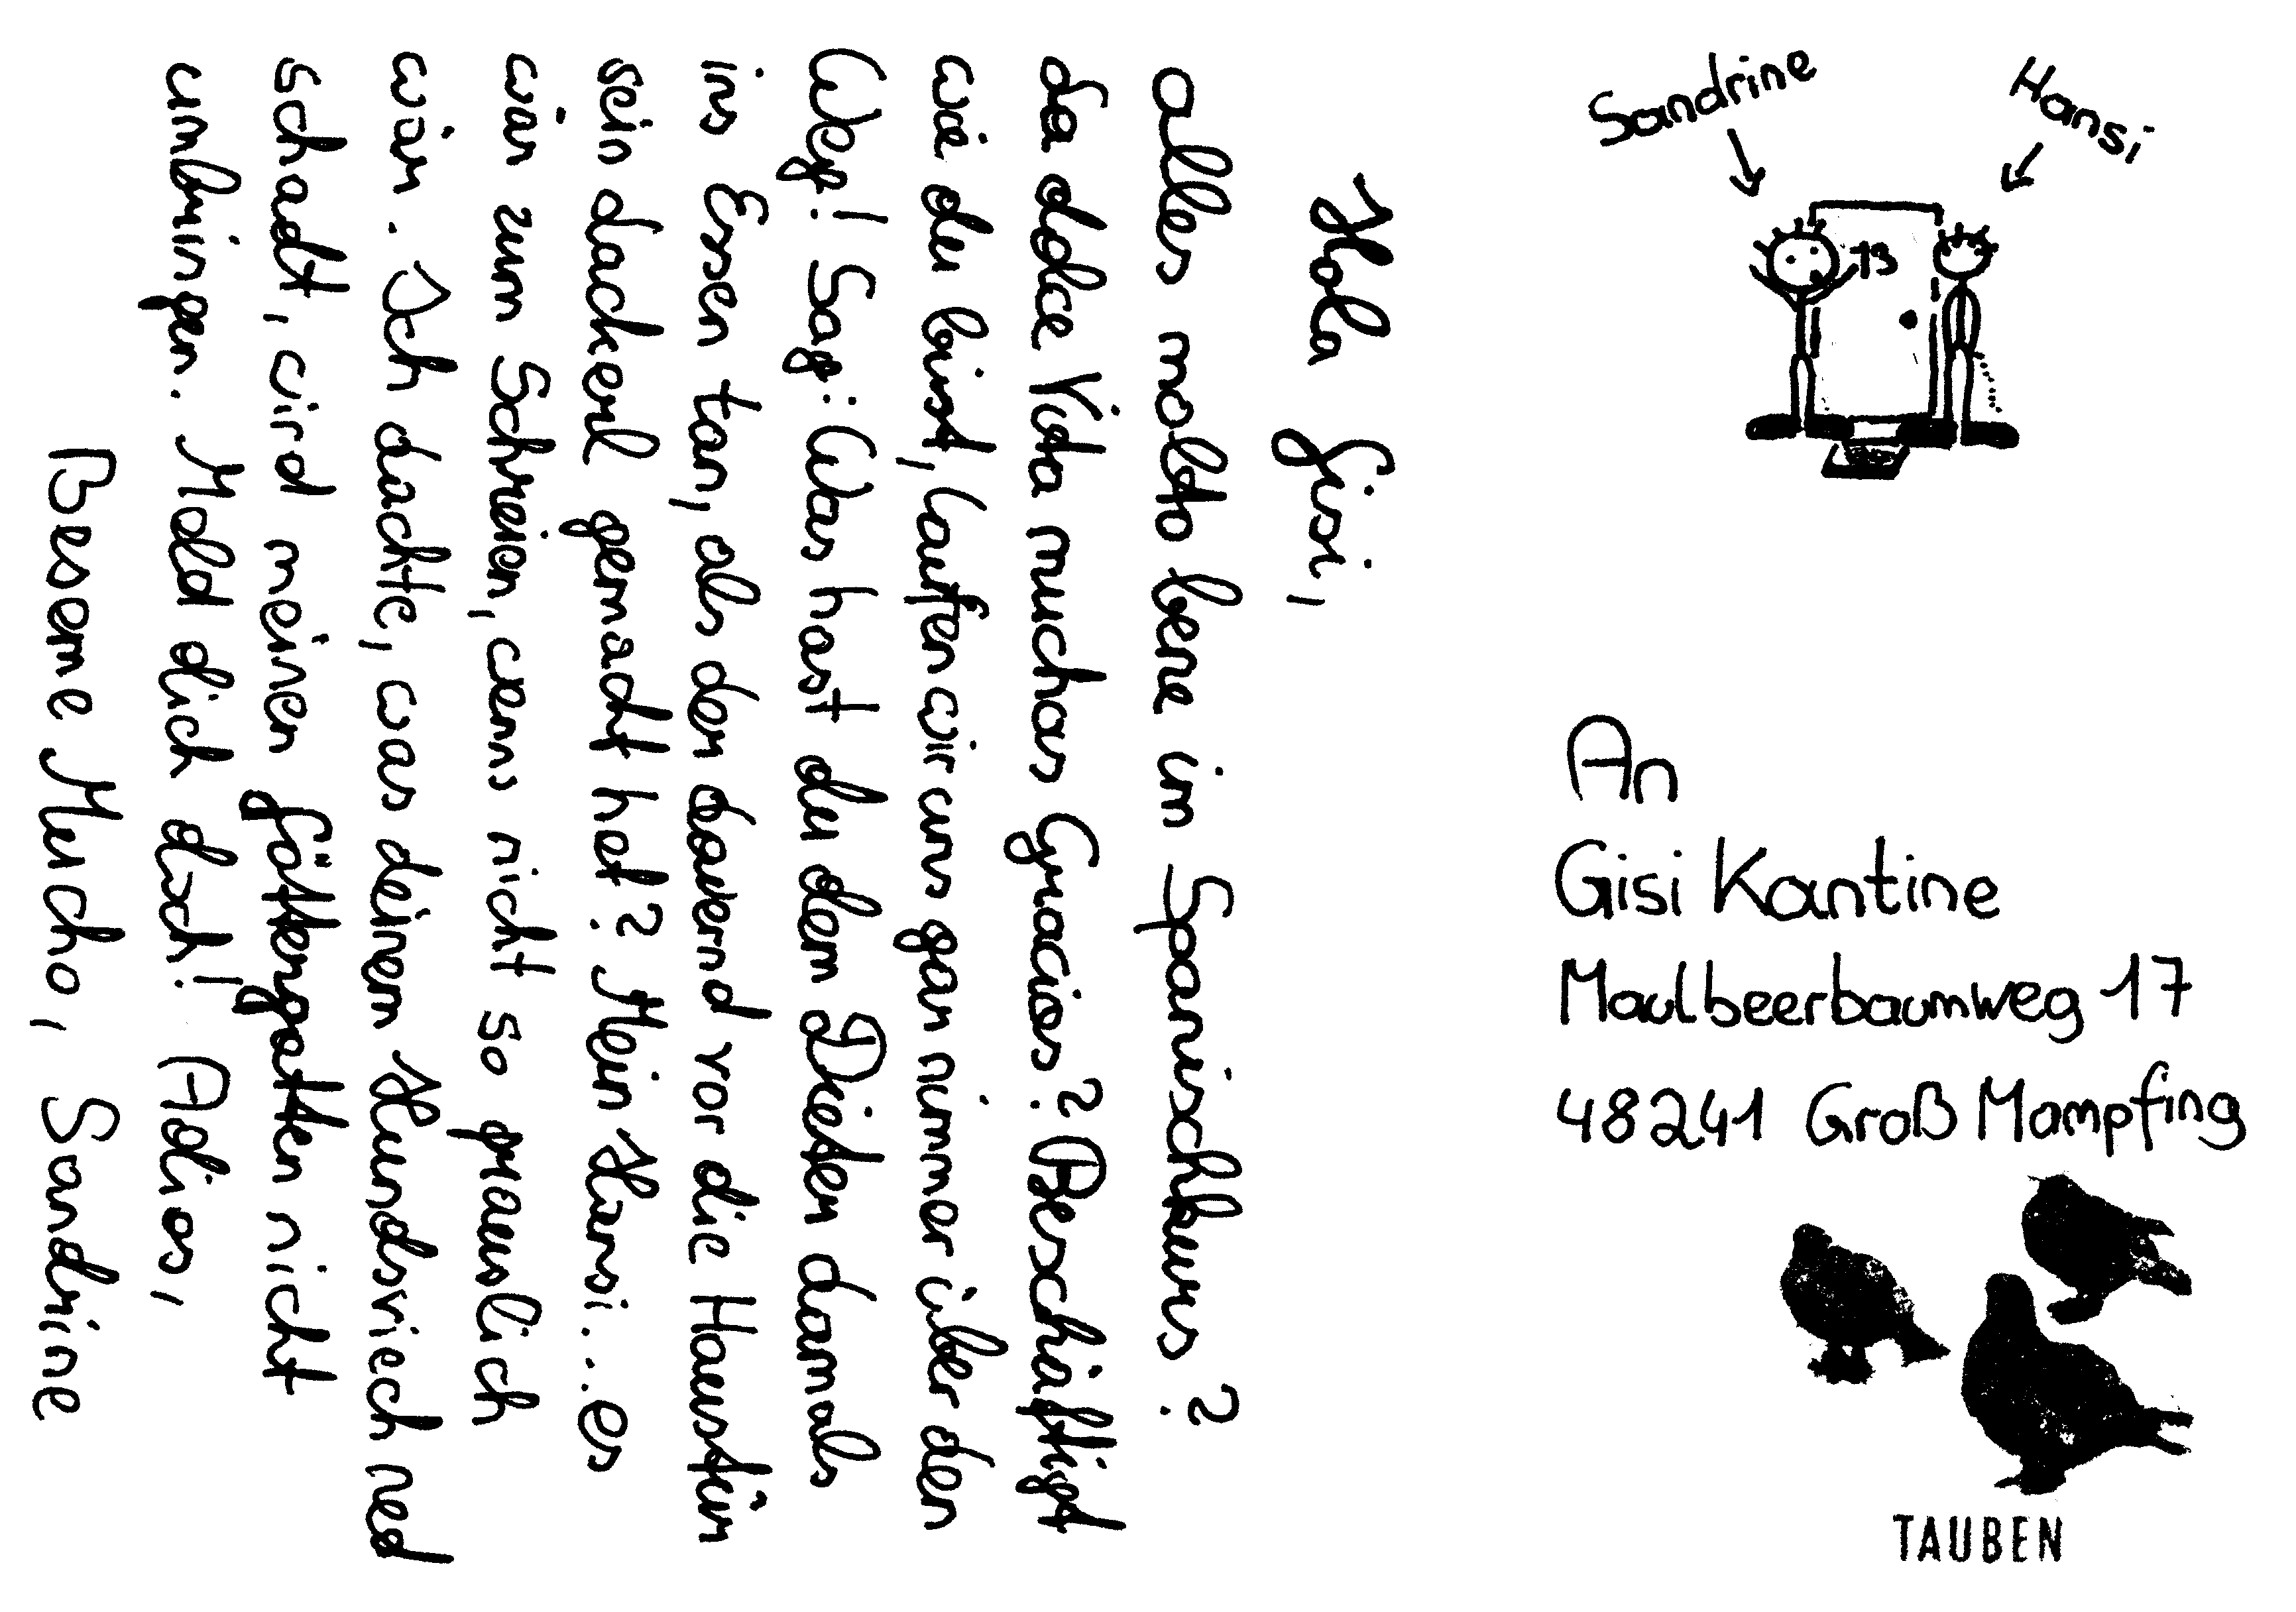 Hola Gisi,
alles molto bene im Spanischkurs?
da dolce Vita muchas Gracias? Beschäftigt
wie du bist, laufen wir uns gar nimmer über den
Weg! Sag: Was hast du dem Dieter damals
ins Essen tan, als der dauernd vor die Haustür
sein dackerl gemacht hat? Mein Hansi... es
wär zum Schreien, wenns nicht so grauslich
wär. Ich dachte, was deinem Hundsviech ned
schadt, wird meinen Göttergatten nicht
umbringen. Meld dich doch! Adios,
Besame Mucho, Sandrine
Sandrine
Hansi
13
An
Gisi Kantine
Maulbeerbaumweg 17
48241 Groß Mampfing
TAUBEN